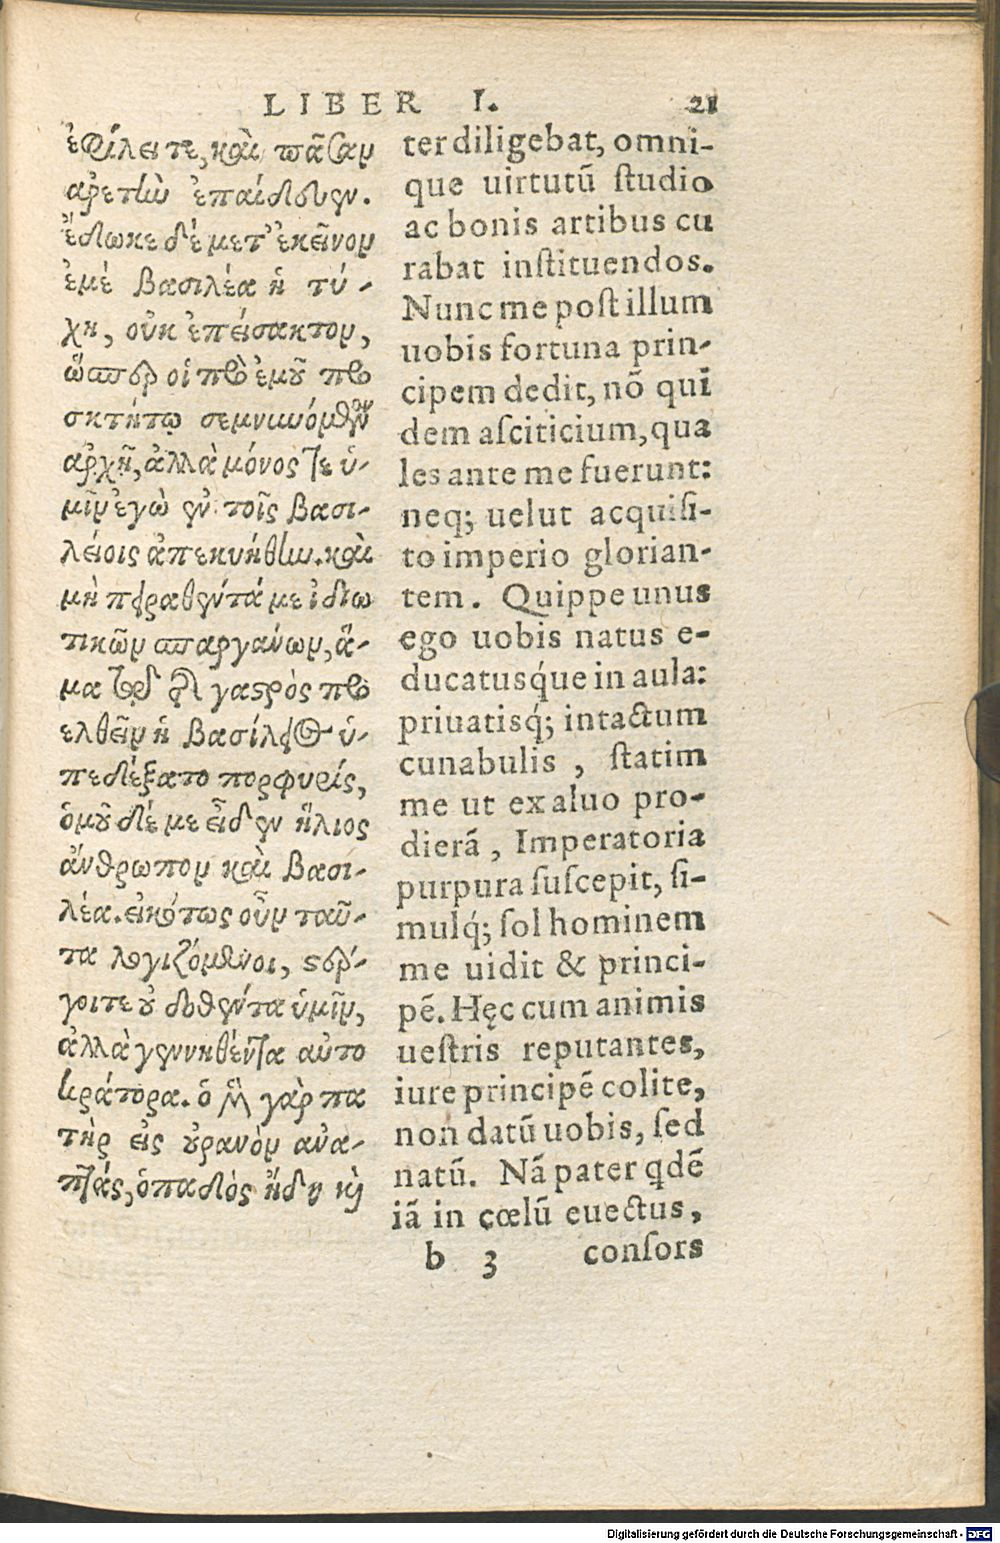 LIBER I. 21
ἐφίλει τε, καὶ πᾶσαν
ἀρετὴν ἐπαίδευεν.
ἔδωκε δέ μετ' ἐκεῖνον
ἐμέ βασιλέα ἡ τύ-
χη, οὐκ ἐπείσακτον,
ὥσπερ οἱ πρὸ ἐμοῦ προ
σκτήτῳ σεμνυνόμενοι
ἀρχῇ, ἀλλὰ μόνος τε ὑ-
μῖν ἐγὼ ἐν τοῖς βασι-
λείοις ἀπεκυήθην. καὶ
μὴ πειραθέντά με ἰδιω
τικῶν σπαργάνων, ἅ-
μα τῆς γαστρὸς προ
ελθεῖν ἡ βασίλειος ὑ-
πεδέξατο πορφυρίς,
ὁμοῦ δέ με εἶδεν ἥλιος
ἄνθρωπον καὶ βασι-
λέα. εἰκότως οὖν ταῦ-
τα λογιζόμενοι, στέρ-
γοιτε οὐ δοθέντα ὑμῖν,
ἀλλὰ γεννηθέντα αὐτο
κράτορα. ὁ μὲν γὰρ πα
τὴρ εἰς οὐρανὸν ἀνα-
πτάς, ὀπαδὸς ἤδη καὶ
ter diligebat, omni-
que uirtutũ studio
ac bonis artibus cu
rabat instituendos.
Nunc me post illum
uobis fortuna prin-
cipem dedit, nõ qui
dem asciticium, qua
les ante me fuerunt:
neq; uelut acquisi-
to imperio glorian-
tem. Quippe unus
ego uobis natus e-
ducatusq́ue in aula:
priuatisq́; intactum
cunabulis, statim
me ut ex aluo pro-
dierã, Imperatoria
purpura suscepit, si-
mulq́; sol hominem
me uidit & princi-
pẽ. Hęc cum animis
uestris reputantes,
iure principẽ colite,
non datũ uobis, sed
natũ. Nã pater qdẽ
iã in cœlũ euectus,
b 3 consors
Digitalisierung gefördert durch die Deutsche Forschungsgemeinschaft - DFG